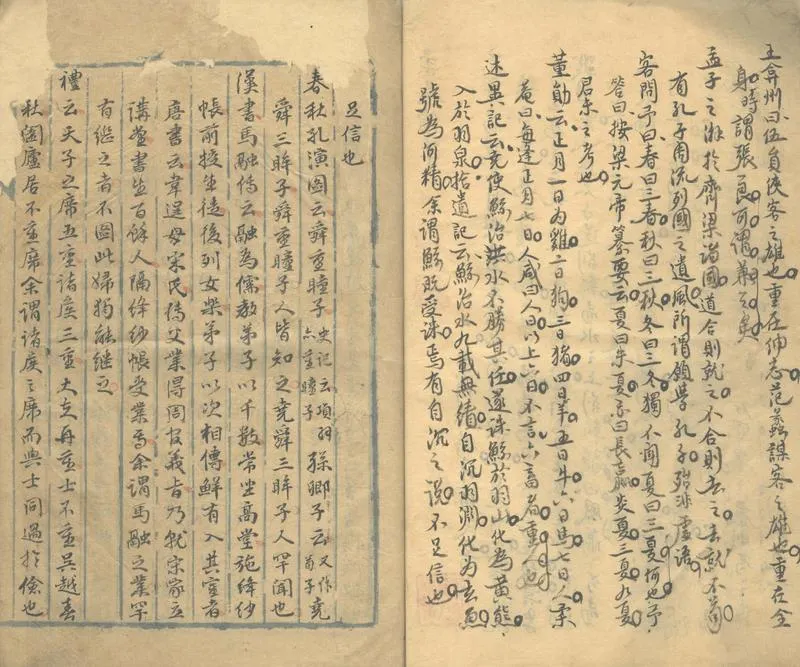 王弇州曰伍員俠客之雄也重在伸志范蠡謀客之雄也重在全
身時謂張良可謂兼之矣
孟子之游於齊梁滕國道合則就之不合則去之去就不苟
有孔子周流列國之遺風所謂願學孔子殆非虛語
客問予曰春曰三春秋曰三秋冬曰三冬獨不聞夏曰三夏何也予
答曰按梁元帝纂要云夏曰朱夏亦曰長嬴炎夏三夏九夏
君未之考也
董勛云正月一日為雞二日狗三日猪四日羊五日牛六日馬七日人栗
菴曰每逢正月七日人咸曰人日以上六日不言六畜者重人也
述異記云堯使鯀治洪水不勝其任遂誅鯀於羽山化為黃熊
入於羽泉拾遺記云鯀治水九載無績自沉羽淵化為玄魚
號為河精余謂鯀既受誅焉有自沉之說不足信也
足信也
春秋孔演圖云舜重瞳子史記云項羽亦重瞳子孫卿子云又作荀子堯
舜三眸子舜重瞳子人皆知之堯舜三眸子人罕聞也
漢書馬融傳云融為儒教弟子以千數常坐高堂施絳紗
帳前授生徒後列女樂弟子以次相傳鮮有入其室者
唐書云韋逞母宋氏傳父業得周官義音乃就宋家立
講堂書生百餘人隔絳紗帳受業焉余謂馬融之業罕
有繼之者不圖此婦獨能繼之
禮云天子之席五重諸侯三重大夫再重士不重吳越春
秋闔廬居不重席余謂諸侯之席而與士同過於儉也